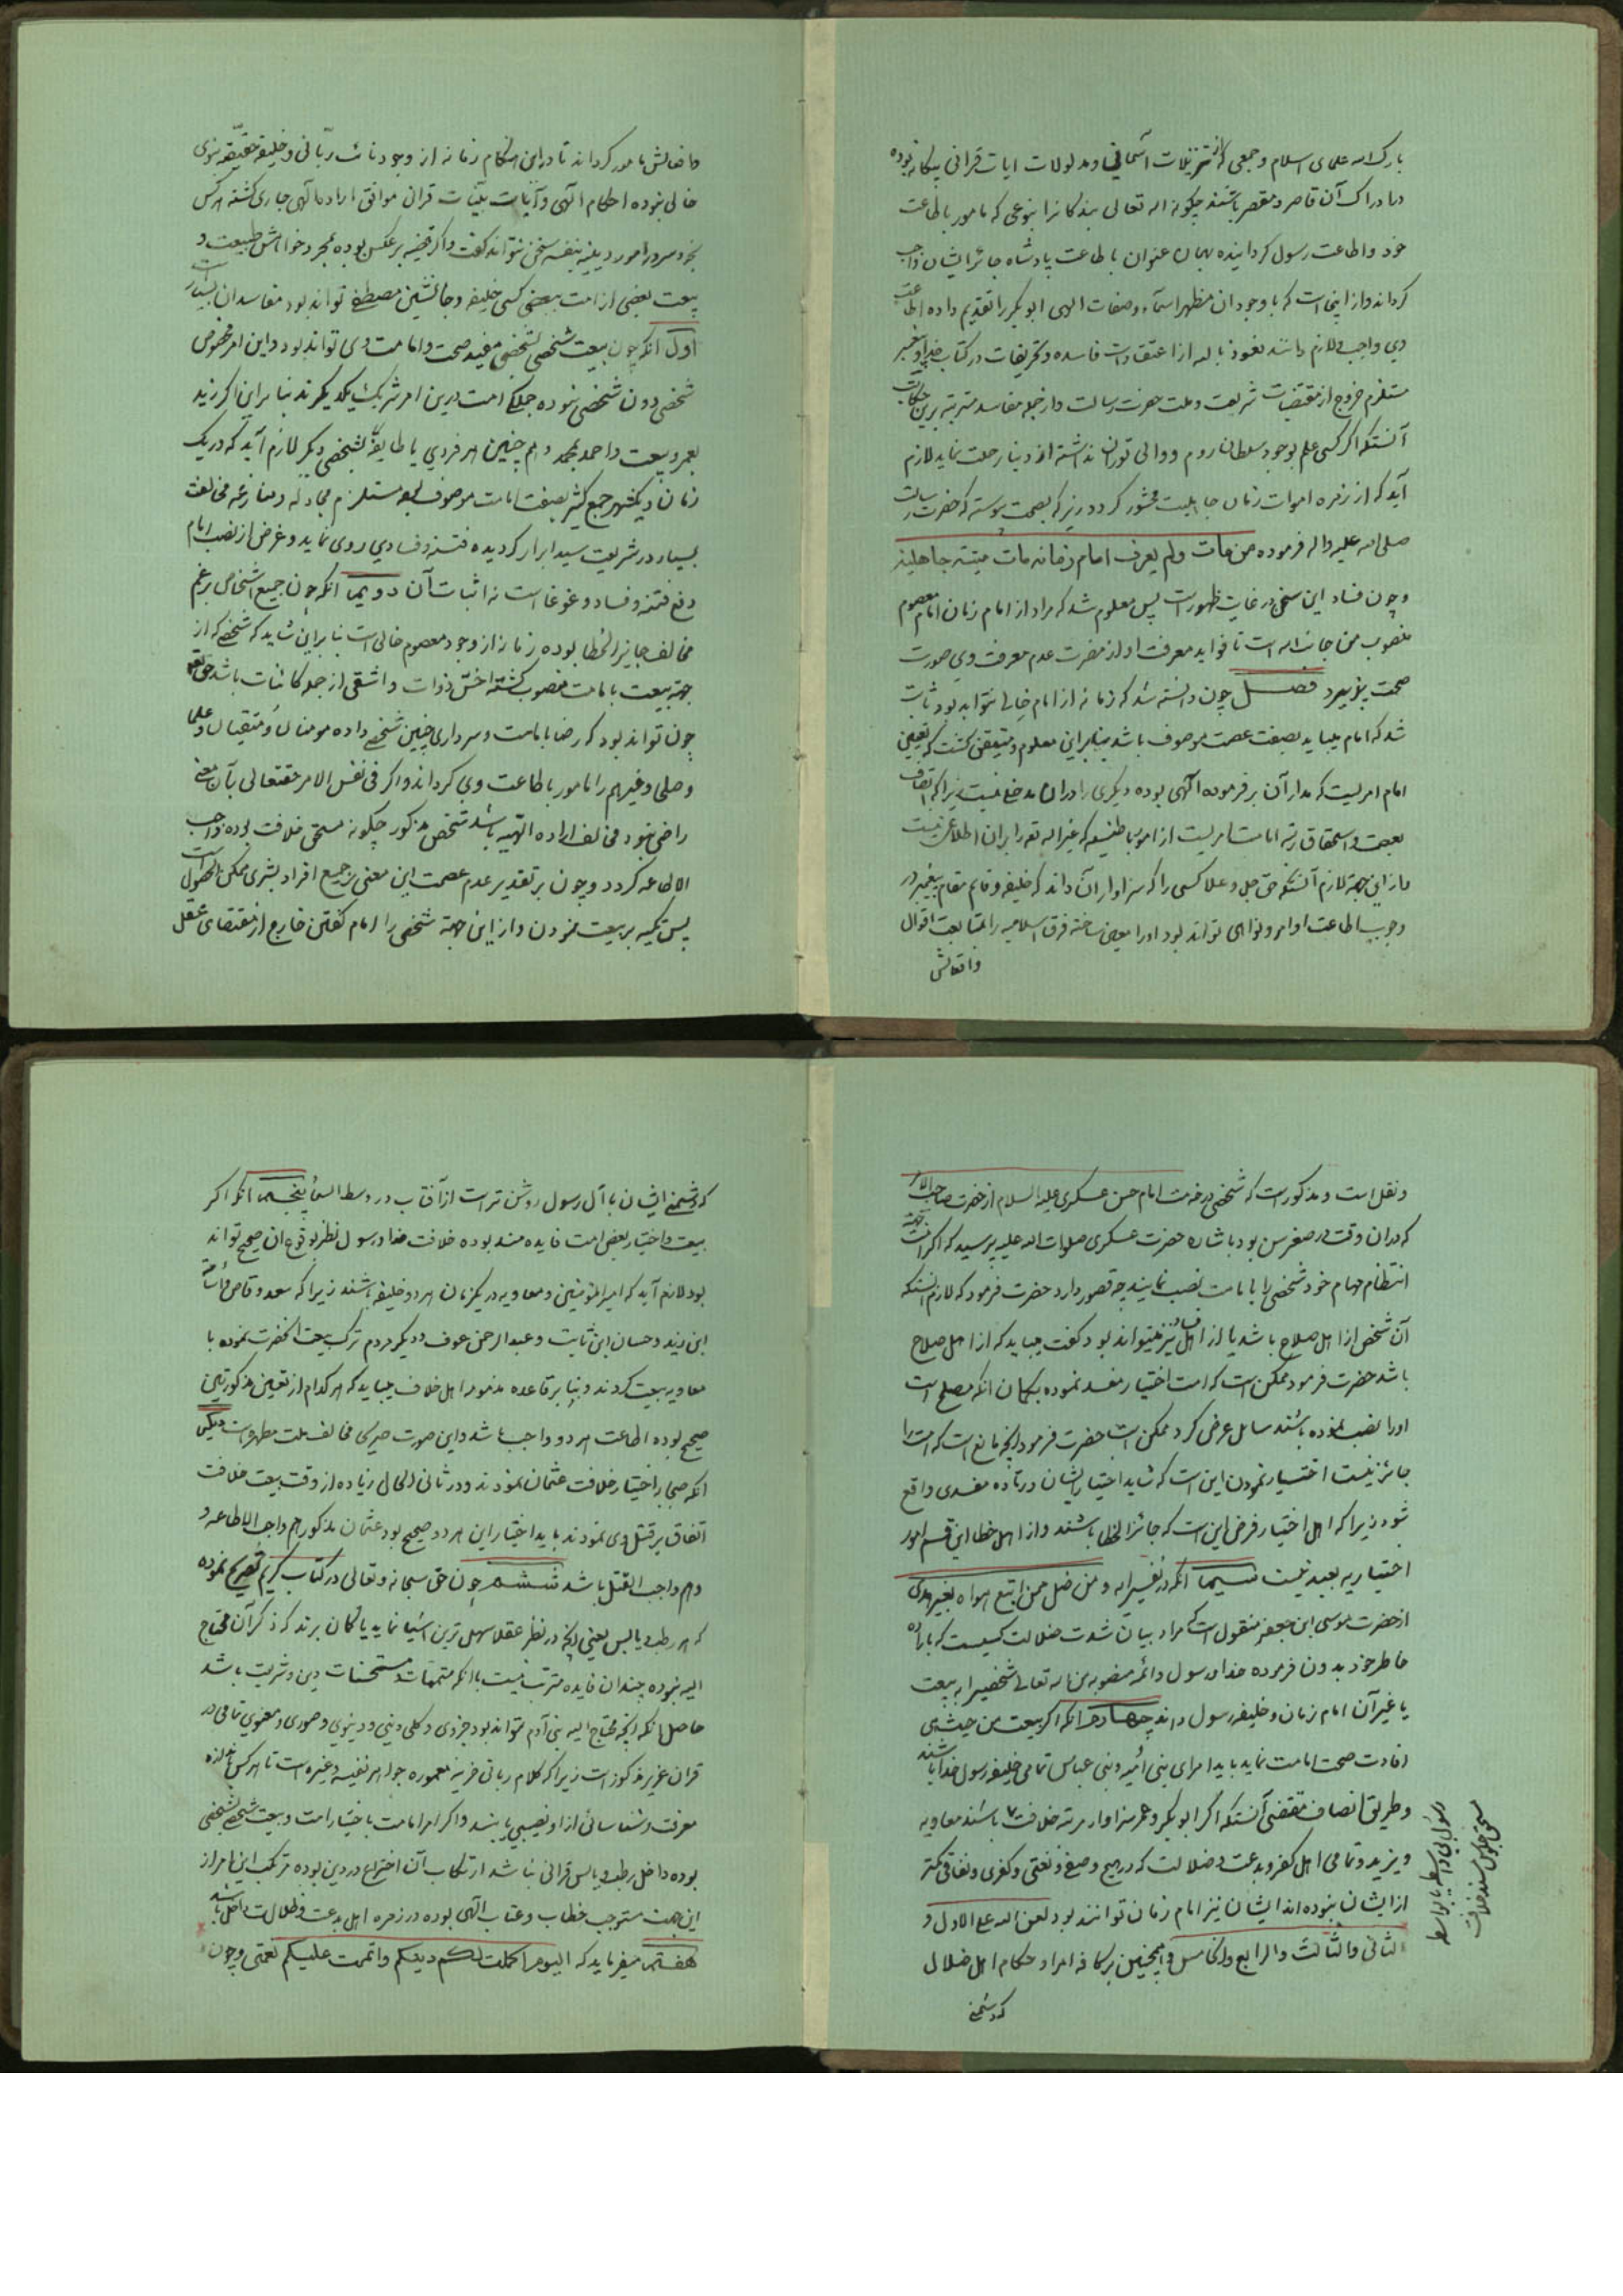 بارک الله علمای اسلام و جمعی که از تنزیلات آسمانی و مدلولات ایات قرانی بیکانه بوده
در ادراک آن قاصر و مقصر باشند چکونه اله تعالی بندکانرا بنوعی که مامور باطاعت
خود و اطاعت رسول کردانیده بهمان عنوان باطاعت پادشاه جائر ایشان واجب
کرداند و از اینجاست که با وجود ان مظهر اسماء و صفات الهی ابو بکر را تقدیم داده اطاعت
وی واجب و لازم دانند نعوذ باله از اعتقادات فاسده و تحریفات در کتاب خدا و پیغمبر
مستلزم خروج از مقتضیات شریعت و ملت حضرت رسالت و از جمله مفاسد مترتبه برین حکایت
آنستکه اکر کسی علم بوجود سلطان روم و والی توران نداشته از دنیا رحلت نماید لازم
آید که از زمره اموات زمان جاهلیت محشور کردد زیرکه بصحت پیوسته که حضرت رسالت
صلی الله علیه واله فرموده من مات ولم یعرف امام زمانه مات میتته جاهلیة
و چون فساد این سخن در غایت ظهور است پس معلوم شد که مراد از امام زمان امام معصوم
منصوب من جانب اله است تا فواید معرفت او و از مضرت عدم معرفت وی صورت
صحت پذیرد فصل چون دانسته شد که زمانه از امام خالی نتواند بود ثابت
شد که امام میباید بصفت عصمت موصوف باشد بنابراین معلوم و متیقن کشت که تعیین
امام امریست که مدار آن بر فرموده آلهی بوده دیکری را دران مدخلی نیست زیراکه اتصاف
بعصمت و استحقاق رتبه امامت امریست از امور باطنیه که غیر اله تعه را بران اطلاعی نیست
و از این جهة لازم آنستکه حق جل و علا کسی را که سزاوار آن داند که خلیفه و قایم مقام پیغمبر در
وجوب اطاعت اوامر و نواهی تواند بود اورا معین ساخته فرق اسلامیه را بمتابعت اقوال
وافعالش
وافعالش مامور کرداند تا در این هنکام زمانه از وجود نائب ربّانی و خلیفه حقیقه نبوی
خالی نبوده احکام الهی و آیات بیّنات قران موافق اراده الهی جاری کشته هرکس
بخرد سر در امور دینیه بنفسه سخن نتواند کفت و اکر قضیه برعکس بوده بمجرد خواهش طبیعت و
بیعت بعضی از امت ببعضی کسی خلیفه و جانشین مصطفی تواند بود مفاسد ان بسیار است
اول انکه چون بیعت شخصی بشخصی مفید صحت و امامت وی تواند بود و این امر مخصوص
شخصی دون شخصی نبوده جملکی امت درین امر شریک یکدیکرند بنابراین اکر زید
بعمرو بیعت و احمد بمحمد و هم چنین هر فردی یا طایفه بشخصی دیکر لازم آید که در یک
زمان و یکشهر جمع کثیر بصفت امامت موصوف و مستلزم مجادله و منازعه مخالفت
بسیار در شریعت سید ابرار کردیده فتنه و فسادی روی نماید و غرض از نصب امام
دفع فتنه و فساد و غوغا است نه اثبات آن دویم انکه چون جمیع اشخاص بزعم
مخالف جایز الخطا بوده زمانه از وجود معصوم خالی است بنابراین شاید که شخصی که از
جهة بیعت بامامت منصوب کشته اخسّ ذوات و اشقی از جمله کائنات باشد حق تعه
چون تواند بود که رضا بامامت و سرداری چنین شخصی داده مومنان و متقیان و علما
و صلحا و غیرهم را مامور باطاعت وی کرداند و اکر فی نفس الامر حقتعالی بآن معنی
راضی نبود و مخالف اراده الهّیه باشد شخص مذکور چکونه مستحق خلافت بوده واجب
الاطاعه کردد و چون بر تقدیر عدم عصمت این معنی بر جمیع افراد بشری ممکن الحصول است
پس تکیه بر بیعت نمودن و از این جهة شخصی را امام کفتن خارج از مقتضای عقل
ونقل است و مذکور است که شخصی در خدمت امام حسن عسکری علیه السلام از حضرت صاحب الامر
که دران وقت در صغر سن بود باشاره حضرت عسکری صلوات اله علیه پرسید که اکر امت جهة
انتظام مهام خود شخصی را بامامت نصب نمایند چه قصور دارد حضرت فرمود که لازم انستکه
آن شخص از اهل صلاح باشد یا از اهل فساد نیز میتواند بود کفت میباید که از اهل صلاح
باشد حضرت فرمود ممکن است که امت اختیار مفسد نموده بکمان انکه مصلح است
اورا نصب نموده باشند سایل عرض کرد ممکن است حضرت فرمود آنچه مانع است که امت را
جائز نیست اختیار نمودن این است که شاید اختیار ایشان در ماده مفسدی واقع
شود زیراکه اهل اختیار فرض این است که جائز الخطا باشند و از اهل خطا این قسم امور
اختیاریه بعید نیست سیم انکه در تفسیر ایه و من اضل ممن اتبع هواه بغیر هدی
از حضرت موسی ابن جعفر منقول است که مراد بیان شدت ضلالت کسیست که باراده
خاطر خود بدون فرموده خدا و رسول و ائمه منصوبه من اله تعالی شخصیرا به بیعت
یا غیر آن امام زمان و خلیفه رسول داند چهارم انکه اکر بیعت من حیث هی
افادت صحت امامت نماید باید امرای بنی امیه و بنی عباس تمامی خلیفه رسول خدا باشند
و طریق انصاف مقتضی آنستکه اکر ابو بکر و عمر سزاوار مرتبه خلافت باشند معاویه
و یزید و تمامی اهل کفر و بدعت و ضلالت که در هیچ وضیع و نعتی و کفری و نفاقی کمتر
از ایشان نبوده اند ایشان نیز امام زمان توانند بود لعن اله علی الاول و
الثانی والثالث والرابع والخامس و همچنین بر کافه امرا و حکام اهل ضلال
مستحق جلوس مسند خلافت
که دشمنی
که دشمنی ایشان با آل رسول روشن تر است از آفتاب در وسط السمأ پنجم انکه اکر
بیعت و اختیار بعض امت فایده مند بوده خلافت خدا و رسول نظر بوقوع ان صحیح تواند
بود لازم آید که امیرالمؤمنین و معاویه در یکزمان هر دو خلیفه باشند زیراکه سعد وقاص و اسامة
ابن زید و حسان ابن ثابت و عبد الرحمن عوف و دیکر مردم ترک بیعت انحضرت نموده با
معاویه بیعت کردند و بنا بر قاعده مذمومه اهل خلاف میباید که هر کدام از تعیین مذکورتین
صحیح بوده اطاعت هر دو واجب باشد و این صورت صریح مخالف ملت مطهره است دیکر
انکه صحابه اختیار خلافت عثمان نمودند و در ثانی الحال زیاده از وقت بیعت خلافت
اتفاق بر قتل وی نمودند باید اختیار این هر دو صحیح بود عثمان مذکور هم واجب الاطاعه و
و هم واجب القتل باشد ششم چون حق سبحانه و تعالی در کتاب کریم تصریح نموده
که هر رطب و یابس یعنی آنچه در نظر عقلا سهل ترین اشیا نماید یا کمان برند که ذکر آن محتاج
الیه نبوده چندان فایده مترتب نیست با انکه متممات و مستحسنات دین و شریعت باشد
حاصل انکه انچه محتاج الیه بنی آدم تواند بود جزوی و کلی دینی و دنیوی و صوری و معنوی تمامی در
قران عزیز مذکور است زیراکه کلام ربانی خزینه معموره جواهر نفیسه و غیره است تا هر کس باندازه
معرفت و شناسائی از او نصیبی یابند و اکر امر امامت باختیار امت و بیعت شخصی بشخصی
بوده داخل رطب و یابس قرانی نباشد ارتکاب آن اختراع در دین بوده مرتکب این امر از
این جهت مستوجب خطاب و عتاب الهی بوده در زمره اهل بدعت و ضلالت داخل باشد
هفتم میفرماید که الیوم اکملت لکم دینکم واتممت علیکم نعمتی و چون